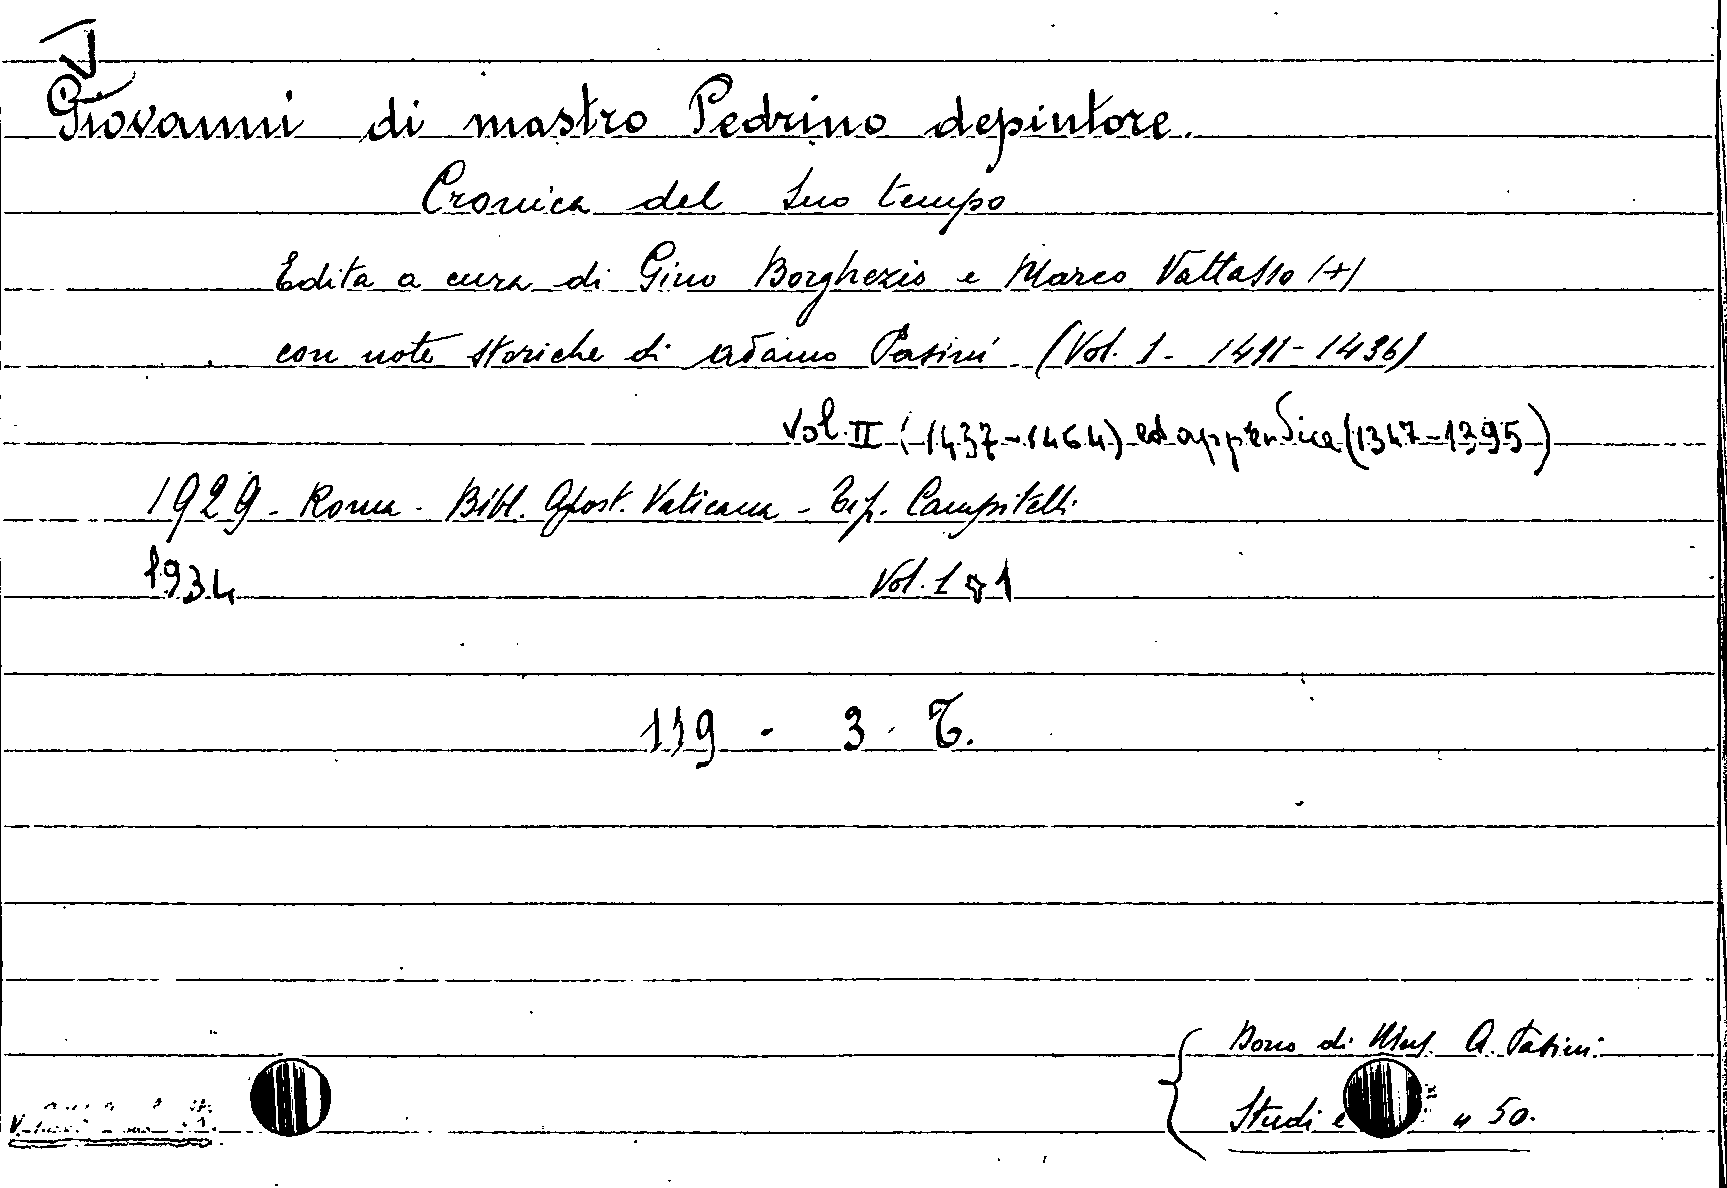 Giovanni di mastro Pedrino depintore.
Cronica del suo tempo
Edita a cura di Gino Borghezio e Marco Vattasso (+)
con note storiche di Adamo Pasini (Vol. 1 - 1411-1436)
Vol. II (1437-1464) ed appendice (1347-1395)
1929 - Roma - Bibl. Apost. Vaticana - Tip. Campitelli
1934 Vol. 1
119 - 3 - T.
Dono di Mons. A. Pasini
Studi e " 50.